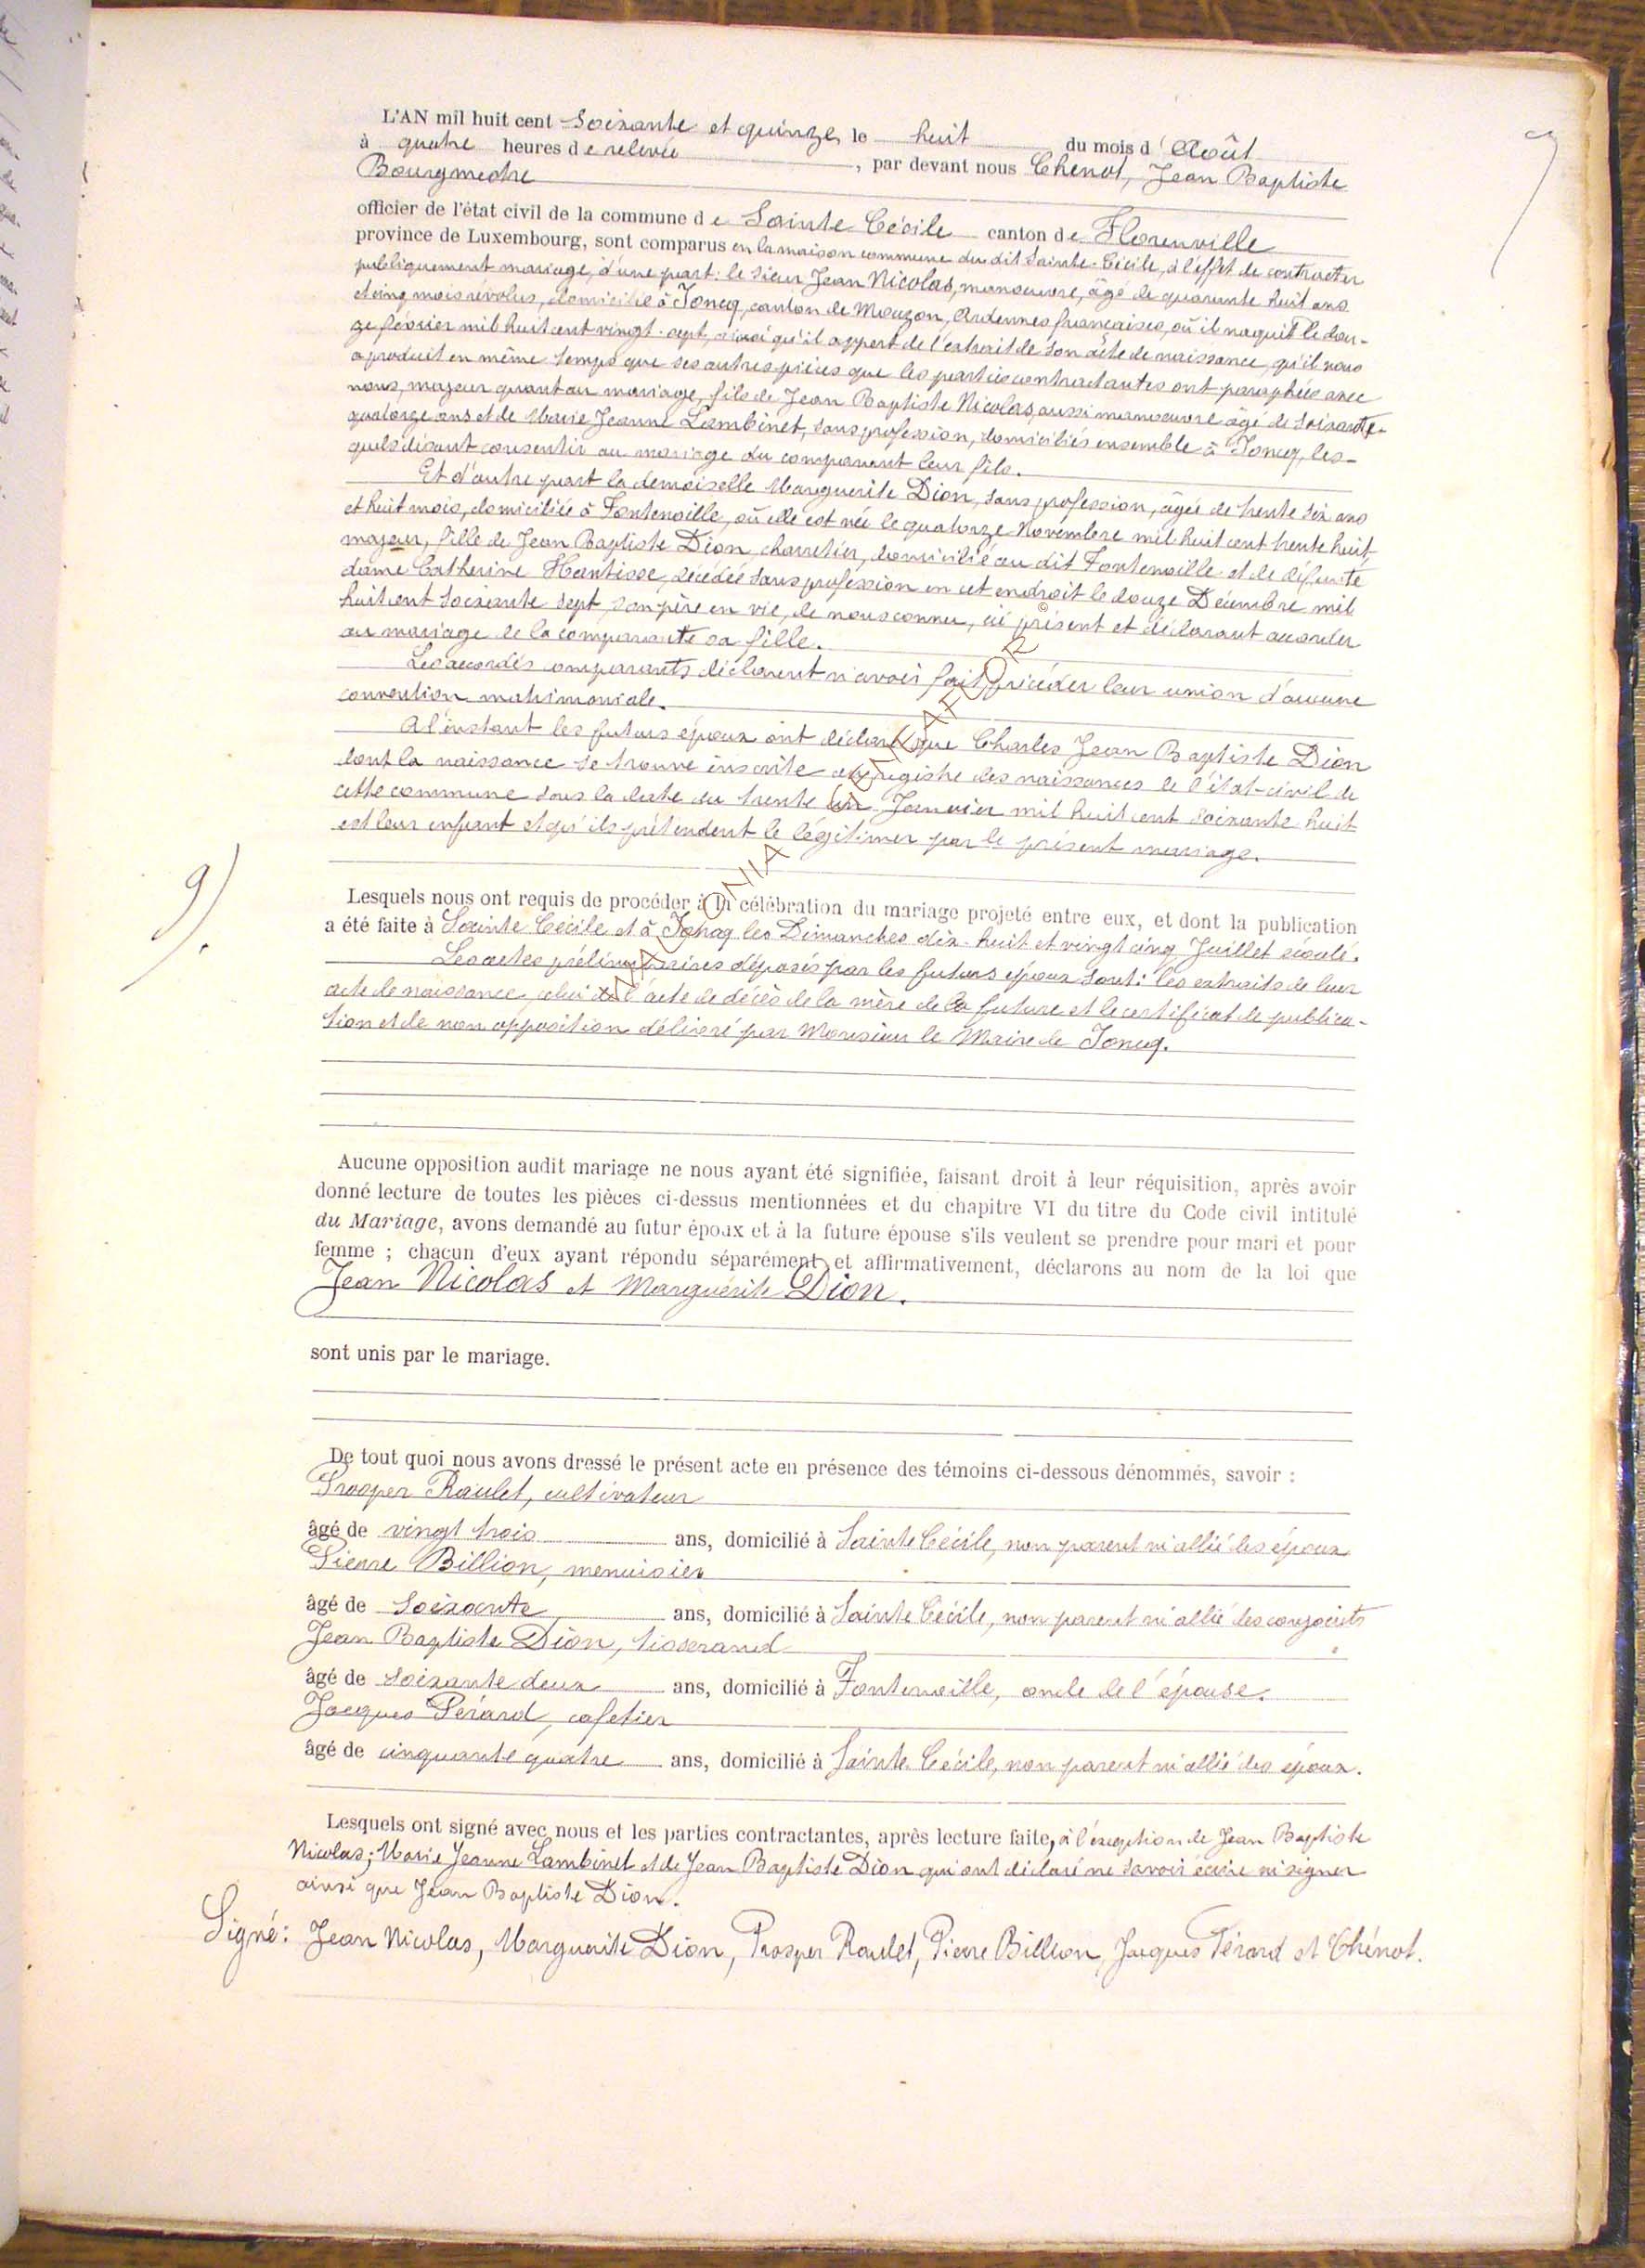 L'AN mil huit cent soixante et quinze, le huit du mois d'Août
à quatre heures de relevée, par devant nous Chenot, Jean Baptiste
Bourgmestre
officier de l'état civil de la commune de Sainte Cécile canton de Florenville
province de Luxembourg, sont comparus en la maison commune du dit Sainte-Cécile, à l'effet de contracter
publiquement mariage, d'une part: le sieur Jean Nicolas, manœuvre, âgé de quarante huit ans
et cinq mois révolus, domicilié à Yoncq, canton de Mouzon, Ardennes françaises, où il naquit le dou-
ze février mil huit cent vingt-sept, ainsi qu'il appert de l'extrait de son acte de naissance, qu'il nous
a produit en même temps que ses autres pièces que les parties contractantes ont paraphées avec
nous, majeur quant au mariage, fils de Jean Baptiste Nicolas, aussi manœuvre âgé de soixante-
quatorze ans et de Marie Jeanne Lambinet, sans profession, domiciliés ensemble à Yoncq, les-
quels disant consentir au mariage du comparant leur fils.
Et d'autre part la demoiselle Marguerite Dion, sans profession, âgée de trente six ans
et huit mois, domiciliée à Fontenoille, où elle est née le quatorze Novembre mil huit cent trente huit,
majeur, fille de Jean Baptiste Dion, charretier, domicilié au dit Fontenoille et de défunte
dame Catherine Hantisse, décédée sans profession en cet endroit le douze Décembre mil
huit cent soixante sept, son père en vie, de nous connu, ici présent et déclarant accorder
au mariage de la comparante sa fille.
Les accordés comparants déclarent n'avoir fait précéder leur union d'aucune
convention matrimoniale.
A l'instant les futurs époux ont déclaré que Charles Jean Baptiste Dion
dont la naissance se trouve inscrite au registre des naissances de l'état-civil de
cette commune sous la date du trente un Janvier mil huit cent soixante huit
est leur enfant et qu'ils prétendent le légitimer par le présent mariage.
9).
Lesquels nous ont requis de procéder à la célébration du mariage projeté entre eux, et dont la publication
a été faite à Sainte Cécile et à Yoncq les Dimanches dix-huit et vingt cinq Juillet écoulé.
Les actes préliminaires déposés par les futurs époux sont: les extraits de leur
acte de naissance, celui de l'acte de décès de la mère de la future et le certificat de publica-
tion et de non opposition délivré par Monsieur le Maire de Yoncq.
Aucune opposition audit mariage ne nous ayant été signifiée, faisant droit à leur réquisition, après avoir
donné lecture de toutes les pièces ci-dessus mentionnées et du chapitre VI du titre du Code civil intitulé
du Mariage, avons demandé au futur époux et à la future épouse s'ils veulent se prendre pour mari et pour
femme ; chacun d'eux ayant répondu séparément et affirmativement, déclarons au nom de la loi que
Jean Nicolas et Marguerite Dion.
sont unis par le mariage.
De tout quoi nous avons dressé le présent acte en présence des témoins ci-dessous dénommés, savoir :
Prosper Raulet, cultivateur
âgé de vingt trois ans, domicilié à Sainte Cécile, non parent ni allié des époux
Pierre Billion, menuisier
âgé de soixante ans, domicilié à Sainte Cécile, non parent ni allié des conjoints
Jean Baptiste Dion, tisserand
âgé de soixante deux ans, domicilié à Fontenoille, oncle de l'épouse.
Jacques Pérard, cafetier
âgé de cinquante quatre ans, domicilié à Sainte Cécile, non parent ni allié des époux.
Lesquels ont signé avec nous et les parties contractantes, après lecture faite, à l'exception de Jean Baptiste
Nicolas; Marie Jeanne Lambinet et de Jean Baptiste Dion qui ont déclaré ne savoir écrire ni signer
ainsi que Jean Baptiste Dion.
Signé: Jean Nicolas, Marguerite Dion, Prosper Raulet, Pierre Billion, Jacques Pérard et Chénot.